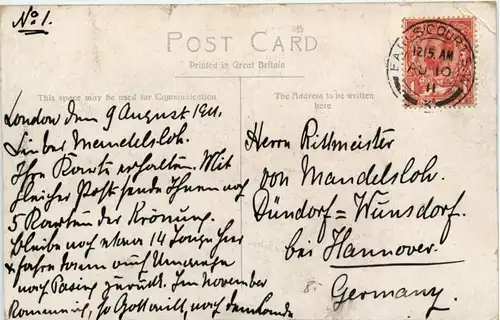 No 1.
POST CARD
Printed in Great Britain
This space may be used for Communication
The Address to be written
here
EARLS COURT S.W.
12.15 AM
AU 10
11
London den 9 August 1911.
Lieber Mandelsloh.
Ihre Karte erhalten. Mit
gleicher Post sende Ihnen noch
5 Karten der Krönung.
Bleibe noch etwa 14 Tage hier
& fahre dann auf Umwege
nach Pasing zurück. Im November
so Gott will, nach
Herrn Rittmeister
von Mandelsloh.
Dündorf = Wunsdorf.
bei Hannover.
Germany.